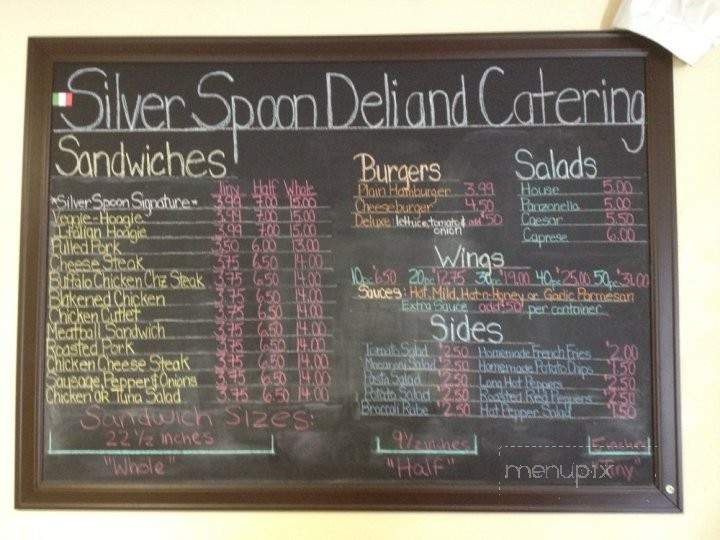 Silver Spoon Deli and Catering
Sandwiches
Tiny Half Whole
*Silver Spoon Signature* 3.99 7.00 15.00
Veggie-Hoagie 3.99 7.00 15.00
Italian Hoagie 3.99 7.00 15.00
Pulled Pork 3.50 6.00 13.00
Cheese Steak 3.75 6.50 14.00
Buffalo Chicken Chz Steak 3.75 6.50 14.00
Blakened Chicken 3.75 6.50 14.00
Chicken Cutlet 3.75 6.50 14.00
Meatball Sandwich 3.75 6.50 14.00
Roasted Pork 3.75 6.50 14.00
Chicken Cheese Steak 3.75 6.50 14.00
Sausage, Peppers & Onions 3.75 6.50 14.00
Chicken OR Tuna Salad 3.75 6.50 14.00
Burgers
Plain Hamburger 3.99
Cheeseburger 4.50
Deluxe: lettuce, tomato & add .50
onion
Salads
House 5.00
Panzonella 5.00
Caesar 5.50
Caprese 6.00
Wings
10pc $6.50 20pc $12.75 30pc $19.00 40pc $25.00 50pc $31.00
Sauces: Hot, Mild, Hot-n-Honey, or Garlic Parmesan
Extra Sauce add $.50 per container
Sides
Tomato Salad $2.50 Homemade French Fries $2.00
Macaroni Salad $2.50 Homemade Potato Chips $1.50
Pasta Salad $2.50 Long Hot Peppers $2.50
Potato Salad $2.50 Roasted Red Peppers $2.50
Broccoli Rabe $2.50 Hot Pepper Salad $1.50
Sandwich Sizes:
22 ½ inches
"Whole"
9½ inches
"Half"
5 inches
"Tiny"
menupix